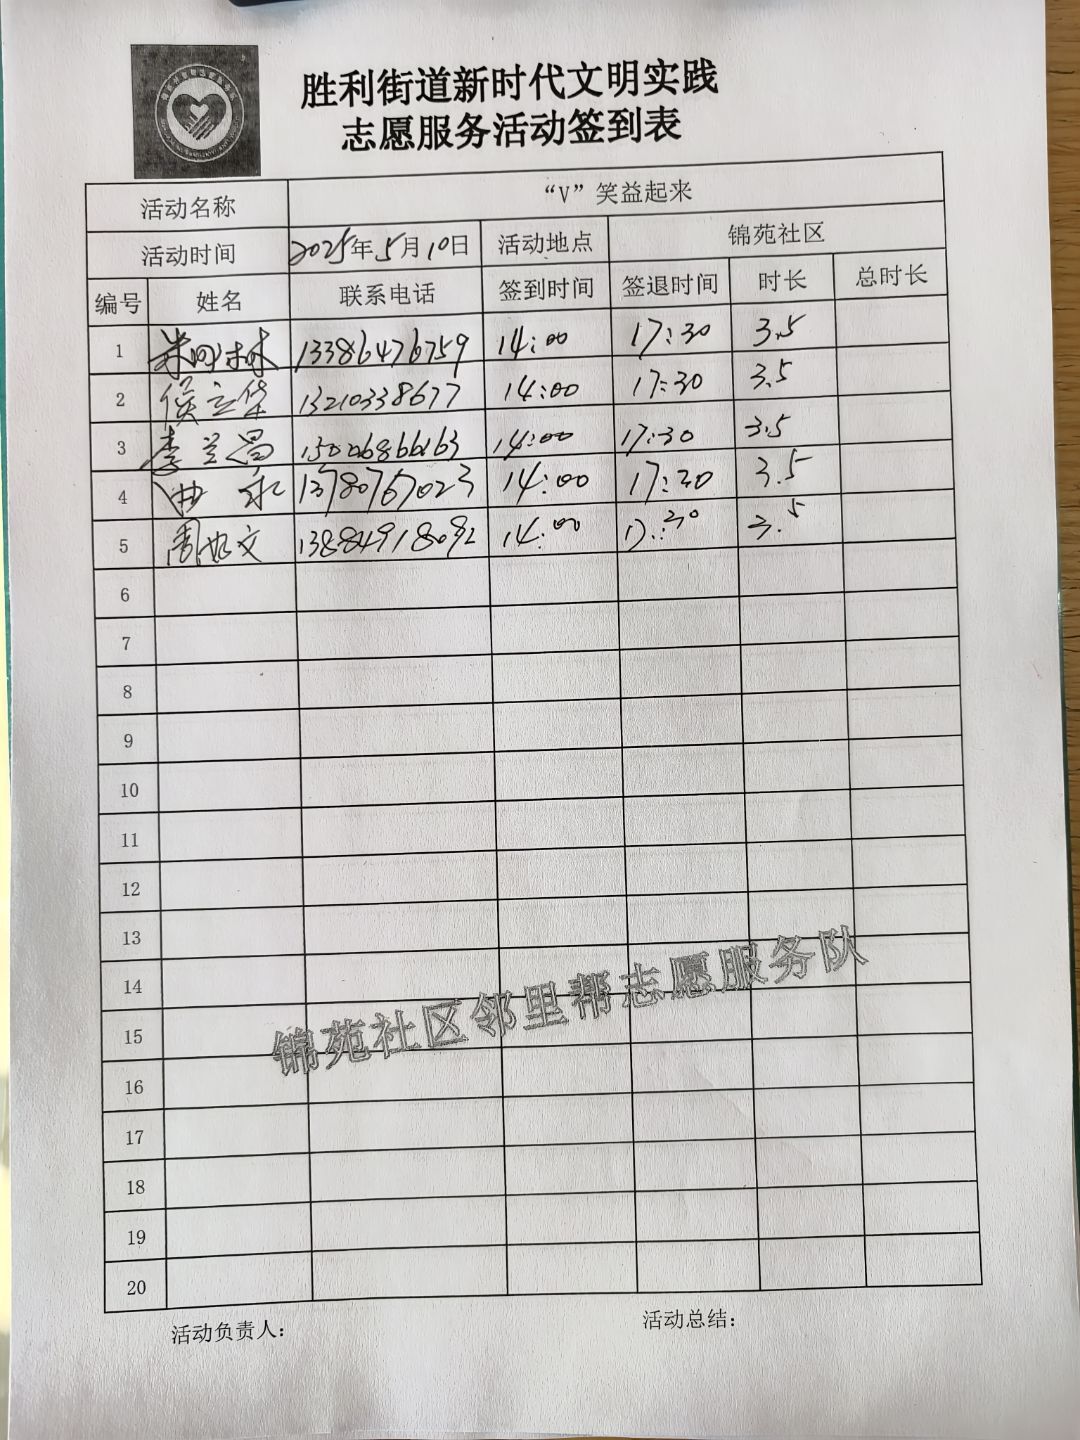 胜利街道新时代文明实践
志愿服务活动签到表
活动名称 “V”笑益起来
活动时间 2025年5月10日 活动地点 锦苑社区
编号 姓名 联系电话 签到时间 签退时间 时长 总时长
1 13386476759 14:00 17:30 3.5
2 侯立华 13210338677 14:00 17:30 3.5
3 李兰昌 15006866163 14:00 17:30 3.5
4 曲永 13780767023 14:00 17:30 3.5
5 周 文 13884918092 14:00 17:30 3.5
6
7
8
9
10
11
12
13
14
15
16
17
18
19
20
锦苑社区邻里帮志愿服务队
活动负责人: 活动总结: